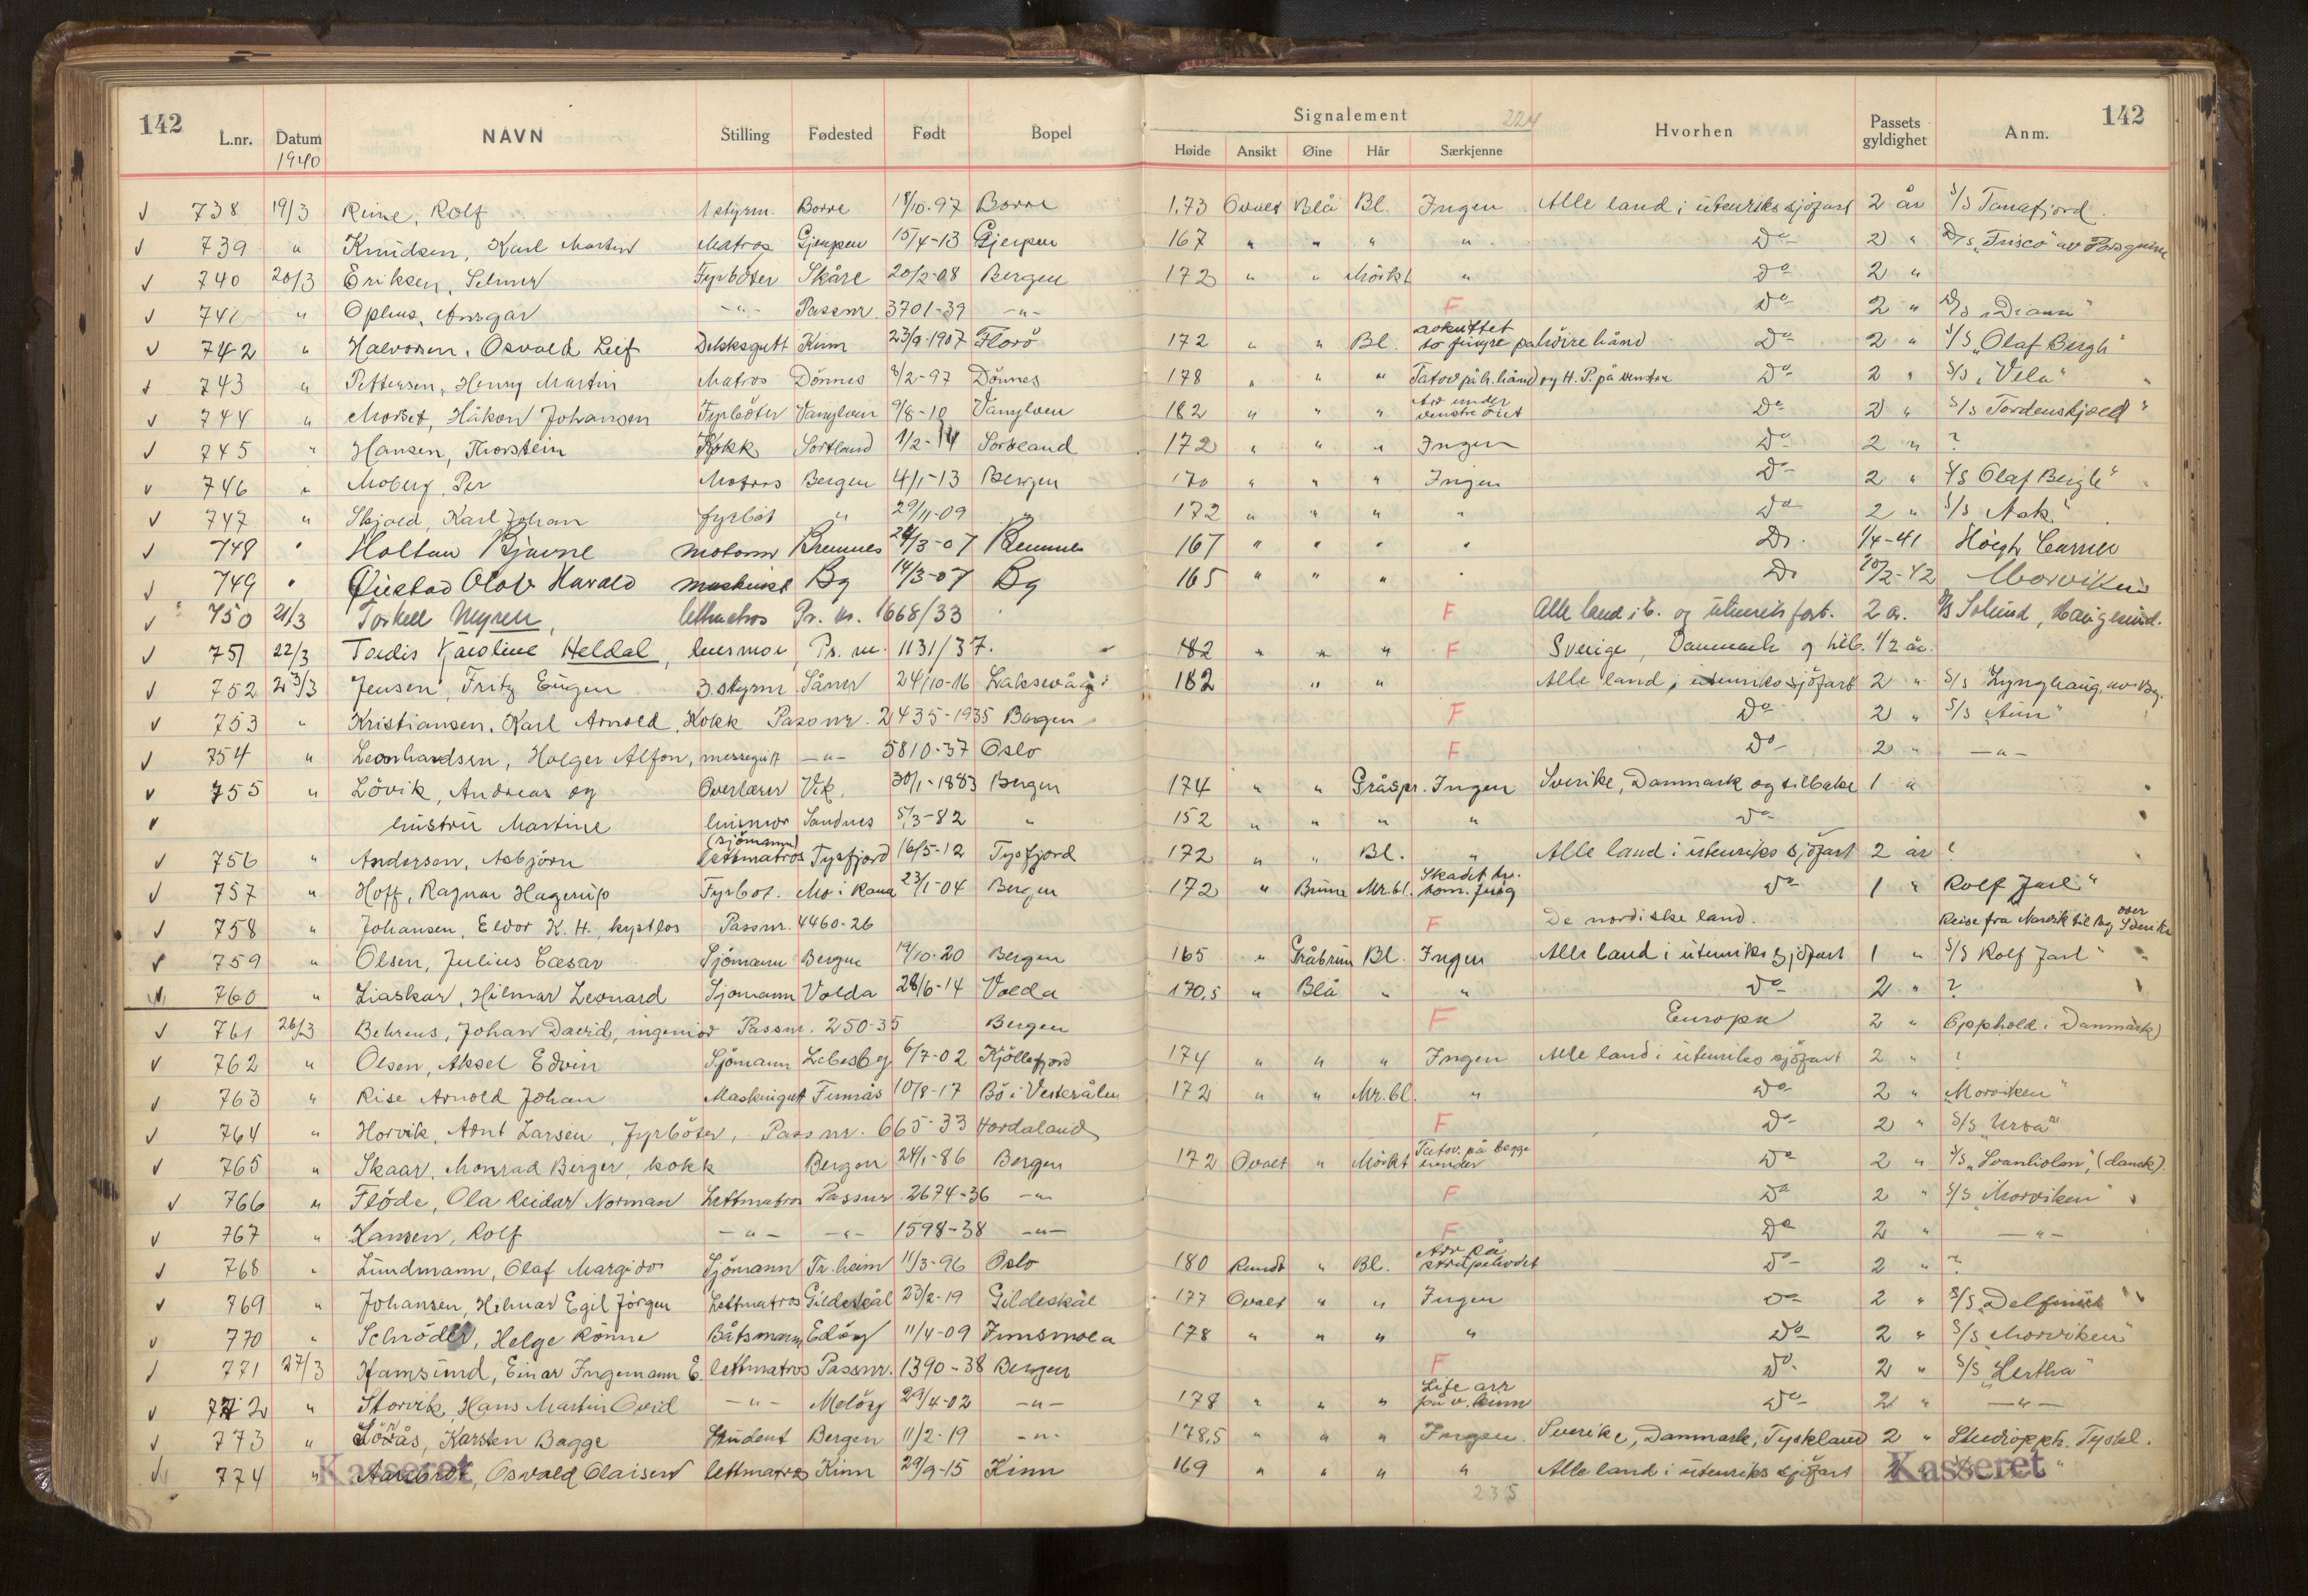 142 L.nr. Datum NAVN Stilling Fødested Født Bopel Signalement 224 Hvorhen Passets gyldighet Anm. 142
1940 Høide Ansikt Øine Hår Særkjenne
738 19/3 Reine, Rolf 1 styrm. Borre 18/10-97 Borre 1,73 Ovalt Blå Bl. Ingen Alle land i utenriks sjöfart 2 år S/S Tanafjord
739 " Knudsen, Karl Martin Matros Gjerpen 15/4-13 Gjerpen 167 " " " " Do 2 " D/S "Frisco" av Porsgrunn
740 20/3 Eriksen, Selmer Fyrböter Skåre 20/2-08 Bergen 172 " " Mörkt " Do 2 "
741 " Ophus, Ansgar -"- Passnr. 3701-39 -"- F Do 2 " D/S "Diana"
742 " Halvorsen, Osvald Leif Dekksgutt Kinn 23/9-1907 Florö 172 " " Bl. avkuttet to fingre på höire hånd Do 2 " S/S "Olaf Bergh"
743 " Pettersen, Henry Martin Matros Dönnes 8/2-97 Dönnes 178 " " " Tatov på h. hånd og H.P. på venstre Do 2 " S/S "Vela"
744 " Morset, Håkon Johansen Fyrböter Vanylven 9/8-10 Vanylven 182 " " " Arr under venstre öiet Do 2 " S/S Tordenskjold"
745 " Hansen, Thorstein Kokk Sortland 1/2-14 Sortland 172 " " " Ingen Do 2 " ?
746 " Moberg, Per Matros Bergen 4/1-13 Bergen 170 " " " Ingen Do 2 " S/S Olaf Bergh"
747 " Skjold, Karl Johan fyrböt " 29/11-09 " 172 " " " " Do 2 " S/S "Ask"
748 " Holtan Bjarne motorm Bremnes 24/3-07 Bremnes 167 " " " " Do. 1/4-41 Höegh Carrier
749 " Olav Harald maskinist Bg 14/3-07 Bg 165 " " " " Do 20/2-42 Morviken
750 21/3 Torkell Myren, lettmatros Pr. nr. 1668/33 F Alle land i E. og utenriks fart. 2 å. D/S Solund, Haugesund.
751 22/3 Tordis Karoline Heldal, husmor, Ps. nr. 1131/37. 182 " " " F Sverige, Danmark og tilb. 1/2 år.
752 23/3 Jensen, Fritz Eugen 3 styrm Såner 24/10-16 Laksevåg 182 " " Alle land i utenriks sjöfart 2 " S/S Lynghaug, av Bg.
753 " Kristiansen, Karl Arnold, Kokk Passnr. 2435-1935 Bergen F Do 2 " S/S "Aun"
754 " Leonhardsen, Holger Alfon, messegutt -"- 5810-37 Oslo F Do 2 " -"-
755 " Lövik, Andreas og Overlærer Vik, 30/1-1883 Bergen 174 " " Gråspr. Ingen Sverike, Danmark og tilbake 1 "
hustru Martine husmor Sandnes 5/3-82 " 152 " " " " Do
756 " Andersen, Asbjörn (sjömann) lettmatros Tysfjord 16/5-12 Tysfjord 172 " " Bl. " Alle land i utenriks sjöfart 2 år ?
757 " Hoff, Ragnar Hagerup Fyrböt. Mo i Rana 23/1-04 Bergen 172 " Brune Mr. bl. Skadet hr. tom. fing Do 1 " Rolf Jarl"
758 " Johansen, Eldor K. H., hyrlös Passnr. 4460-26 F De nordiske land. Reise fra Narvik til Bg. over Sverike
759 " Olsen, Julius Cæsar Sjömann Bergen 19/10-20 Bergen 165 " Gråbrun Bl. Ingen Alle land i utenriks sjöfart 1 " S/S Rolf Jarl"
760 " Liaskar, Hilmar Leonard Sjömann Volda 28/6-14 Volda 170,5 " Blå " " Do 2 " ?
761 26/3 Behrens, Johan David, ingeniör Passnr. 250-35 Bergen F Europa 2 " Opphold i Danmark
762 " Olsen, Aksel Edvin Sjömann Lebesby 6/7-02 Kjöllefjord 174 " " " Ingen Alle land i utenriks sjöfart 2 " ?
763 " Rise Arnold Johan Maskingutt Furnäs 10/8-17 Bö i Vesterålen 172 " " Mr. bl. " Do 2 " "Morviken"
764 " Horvik, Arnt Larsen, Fyrböter, Passnr. 665-33 Hordaland F Do 2 " S/S "Ursa"
765 " Skaar, Monrad Berger, kokk Bergen 24/1-86 Bergen 172 Ovalt " Mörkt Tatov. på begge hender Do 2 " S/S "Svanholm", (dansk)
766 " Flöde, Ola Reidar Norman Lettmatros Passnr. 2674-36 -"- F Do 2 " S/S "Morviken"
767 " Hansen, Rolf -"- -"- 1598-38 -"- F Do 2 " -"-
768 " Lundmann, Olaf Margido Sjömann Tr.heim 11/3-96 Oslo 180 Rundt " Bl. Arr på strupehodet Do 2 " ?
769 " Johansen, Hilmar Egil Jörgen Lettmatros Gildeskål 23/2-19 Gildeskål 177 Ovalt " " Ingen Do 2 " S/S "Delfinus"
770 " Schröder, Helge Rönne Båtsmann Edöy 11/4-09 178 " " " " Do 2 " S/S "Morviken"
771 27/3 Hamsund, Einar Ingemann E. lettmatros Passnr. 1390-38 Bergen F Do. 2 " S/S "Hertha"
772 " Storvik, Hans Martin Ovid -"- Melöy 29/4-02 -"- 178 " " " Lite arr på v. kinn Do 2 " -"-
773 " Karsten Bagge Student Bergen 11/2-19 -"- 178,5 " " " Ingen. Sverike, Danmark, Tyskland 2 " Studieopph. Tyskl.
774 " Aarebrot, Osvald Olaisen lettmatros Kinn 29/9-15 Kinn 169 " " " " Alle land i utenriks sjöfart 2
Kasseret Kasseret
235